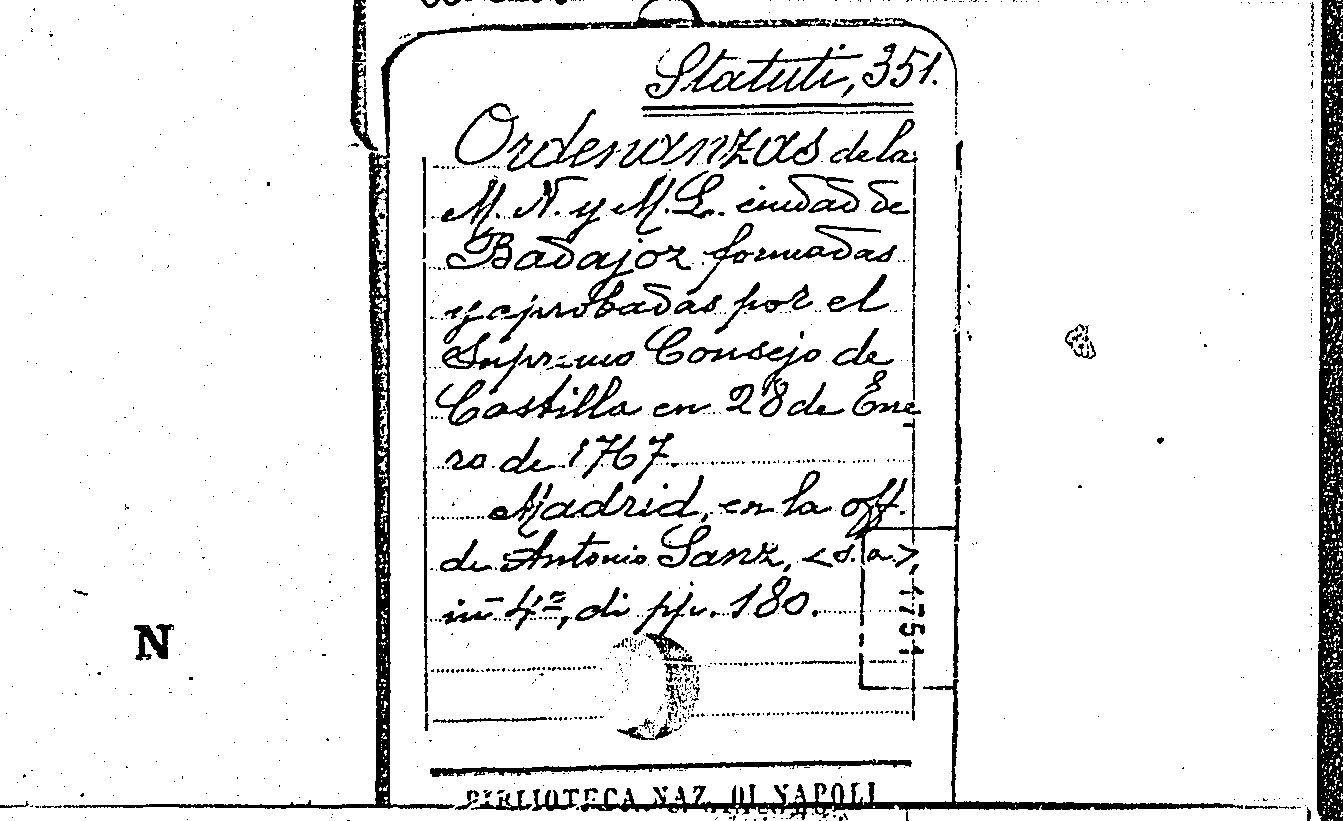 Statuti, 351.
Ordenanzas de la
M. N. y M. L. ciudad de
Badajoz formadas
y aprobadas por el
Supremo Consejo de
Castilla en 28 de Ene
ro de 1767.
Madrid, en la off.
de Antonio Sanz, <s.a.>,
in 4º, di pp. 180.
1751
N
BIBLIOTECA NAZ. DI NAPOLI